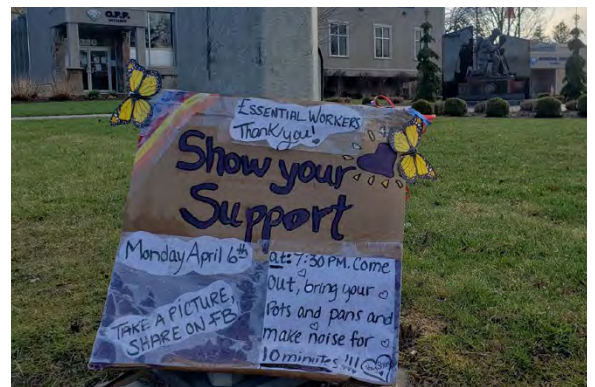 O.P.P.
ESSENTIAL WORKERS
Thank you!
Show your
Support
Monday April 6th
TAKE A PICTURE,
SHARE ON FB
at: 7:30 PM. Come
out, bring your
Pots and pans and
make noise for
10 minutes !!!